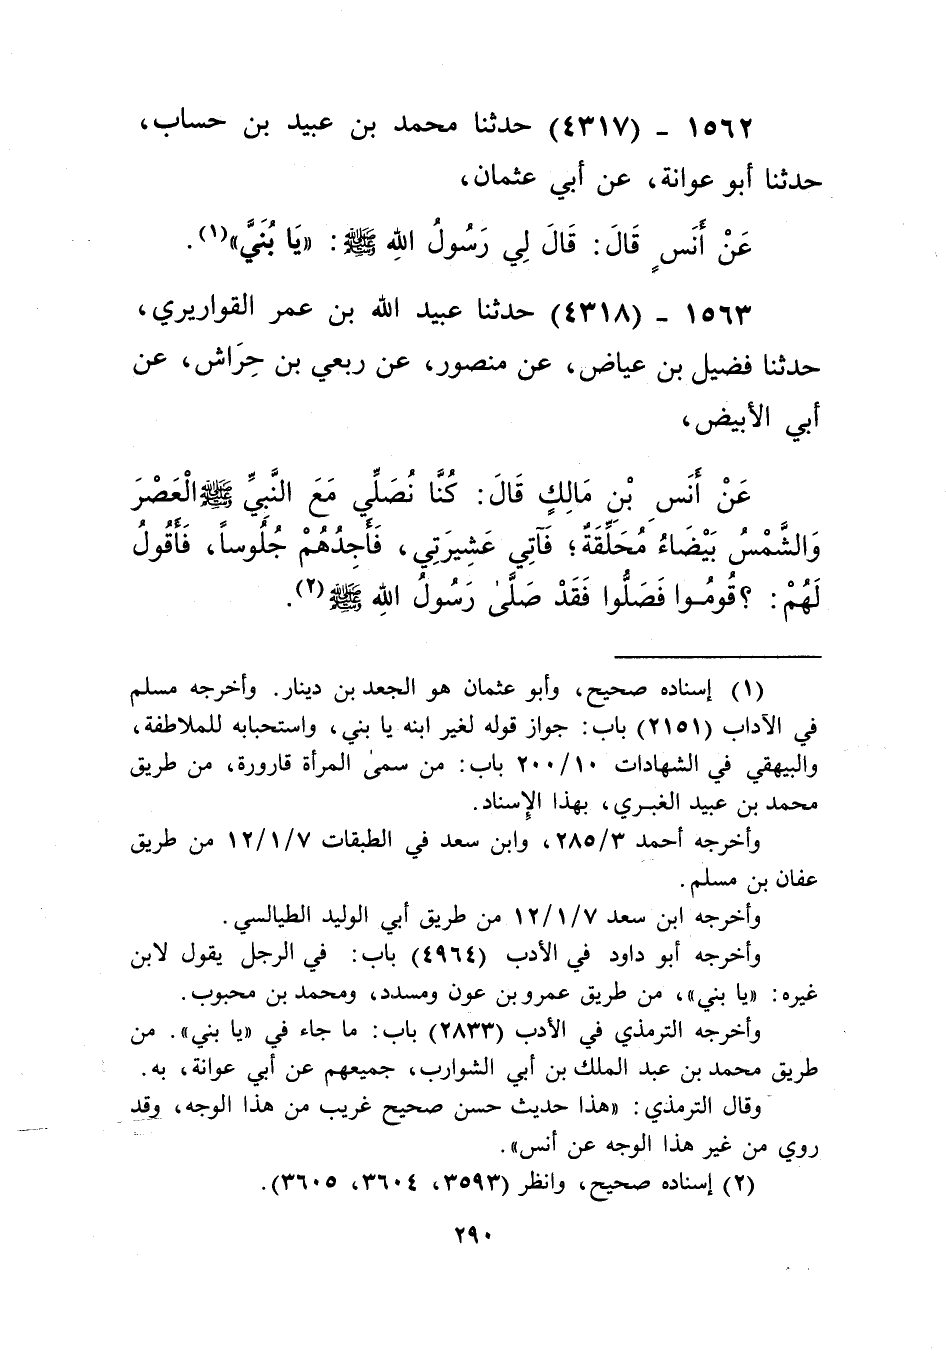 ١٥٦٢ ـ (٤٣١٧) حدثنا محمد بن عبيد بن حساب،
حدثنا أبو عوانة، عن أبي عثمان،
عَنْ أَنَسٍ قَالَ: قَالَ لِي رَسُولُ اللهِ ﷺ: «يَا بُنَيَّ»(١).
١٥٦٣ ـ (٤٣١٨) حدثنا عبيد الله بن عمر القواريري،
حدثنا فضيل بن عياض، عن منصور، عن ربعي بن حِرَاش، عن
أبي الأبيض،
عَنْ أَنَسِ بْنِ مَالِكٍ قَالَ: كُنَّا نُصَلِّي مَعَ النَّبِيِّ ﷺ الْعَصْرَ
وَالشَّمْسُ بَيْضَاءُ مُحَلِّقَةٌ؛ فَآتِي عَشِيرَتِي، فَأَجِدُهُمْ جُلُوساً، فَأَقُولُ
لَهُمْ: ؟قُومُوا فَصَلُّوا فَقَدْ صَلَّىٰ رَسُولُ اللهِ ﷺ(٢).
(١) إسناده صحيح، وأبو عثمان هو الجعد بن دينار. وأخرجه مسلم
في الآداب (٢١٥١) باب: جواز قوله لغير ابنه يا بني، واستحبابه للملاطفة،
والبيهقي في الشهادات ٢٠٠/١٠ باب: من سمىٰ المرأة قارورة، من طريق
محمد بن عبيد الغبري، بهذا الإسناد.
وأخرجه أحمد ٢٨٥/٣، وابن سعد في الطبقات ١٢/١/٧ من طريق
عفان بن مسلم.
وأخرجه ابن سعد ١٢/١/٧ من طريق أبي الوليد الطيالسي.
وأخرجه أبو داود في الأدب (٤٩٦٤) باب: في الرجل يقول لابن
غيره: «يا بني»، من طريق عمرو بن عون ومسدد، ومحمد بن محبوب.
وأخرجه الترمذي في الأدب (٢٨٣٣) باب: ما جاء في «يا بني». من
طريق محمد بن عبد الملك بن أبي الشوارب، جميعهم عن أبي عوانة، به.
وقال الترمذي: «هذا حديث حسن صحيح غريب من هذا الوجه، وقد
روي من غير هذا الوجه عن أنس».
(٢) إسناده صحيح، وانظر (٣٥٩٣، ٣٦٠٤، ٣٦٠٥).
٢٩٠